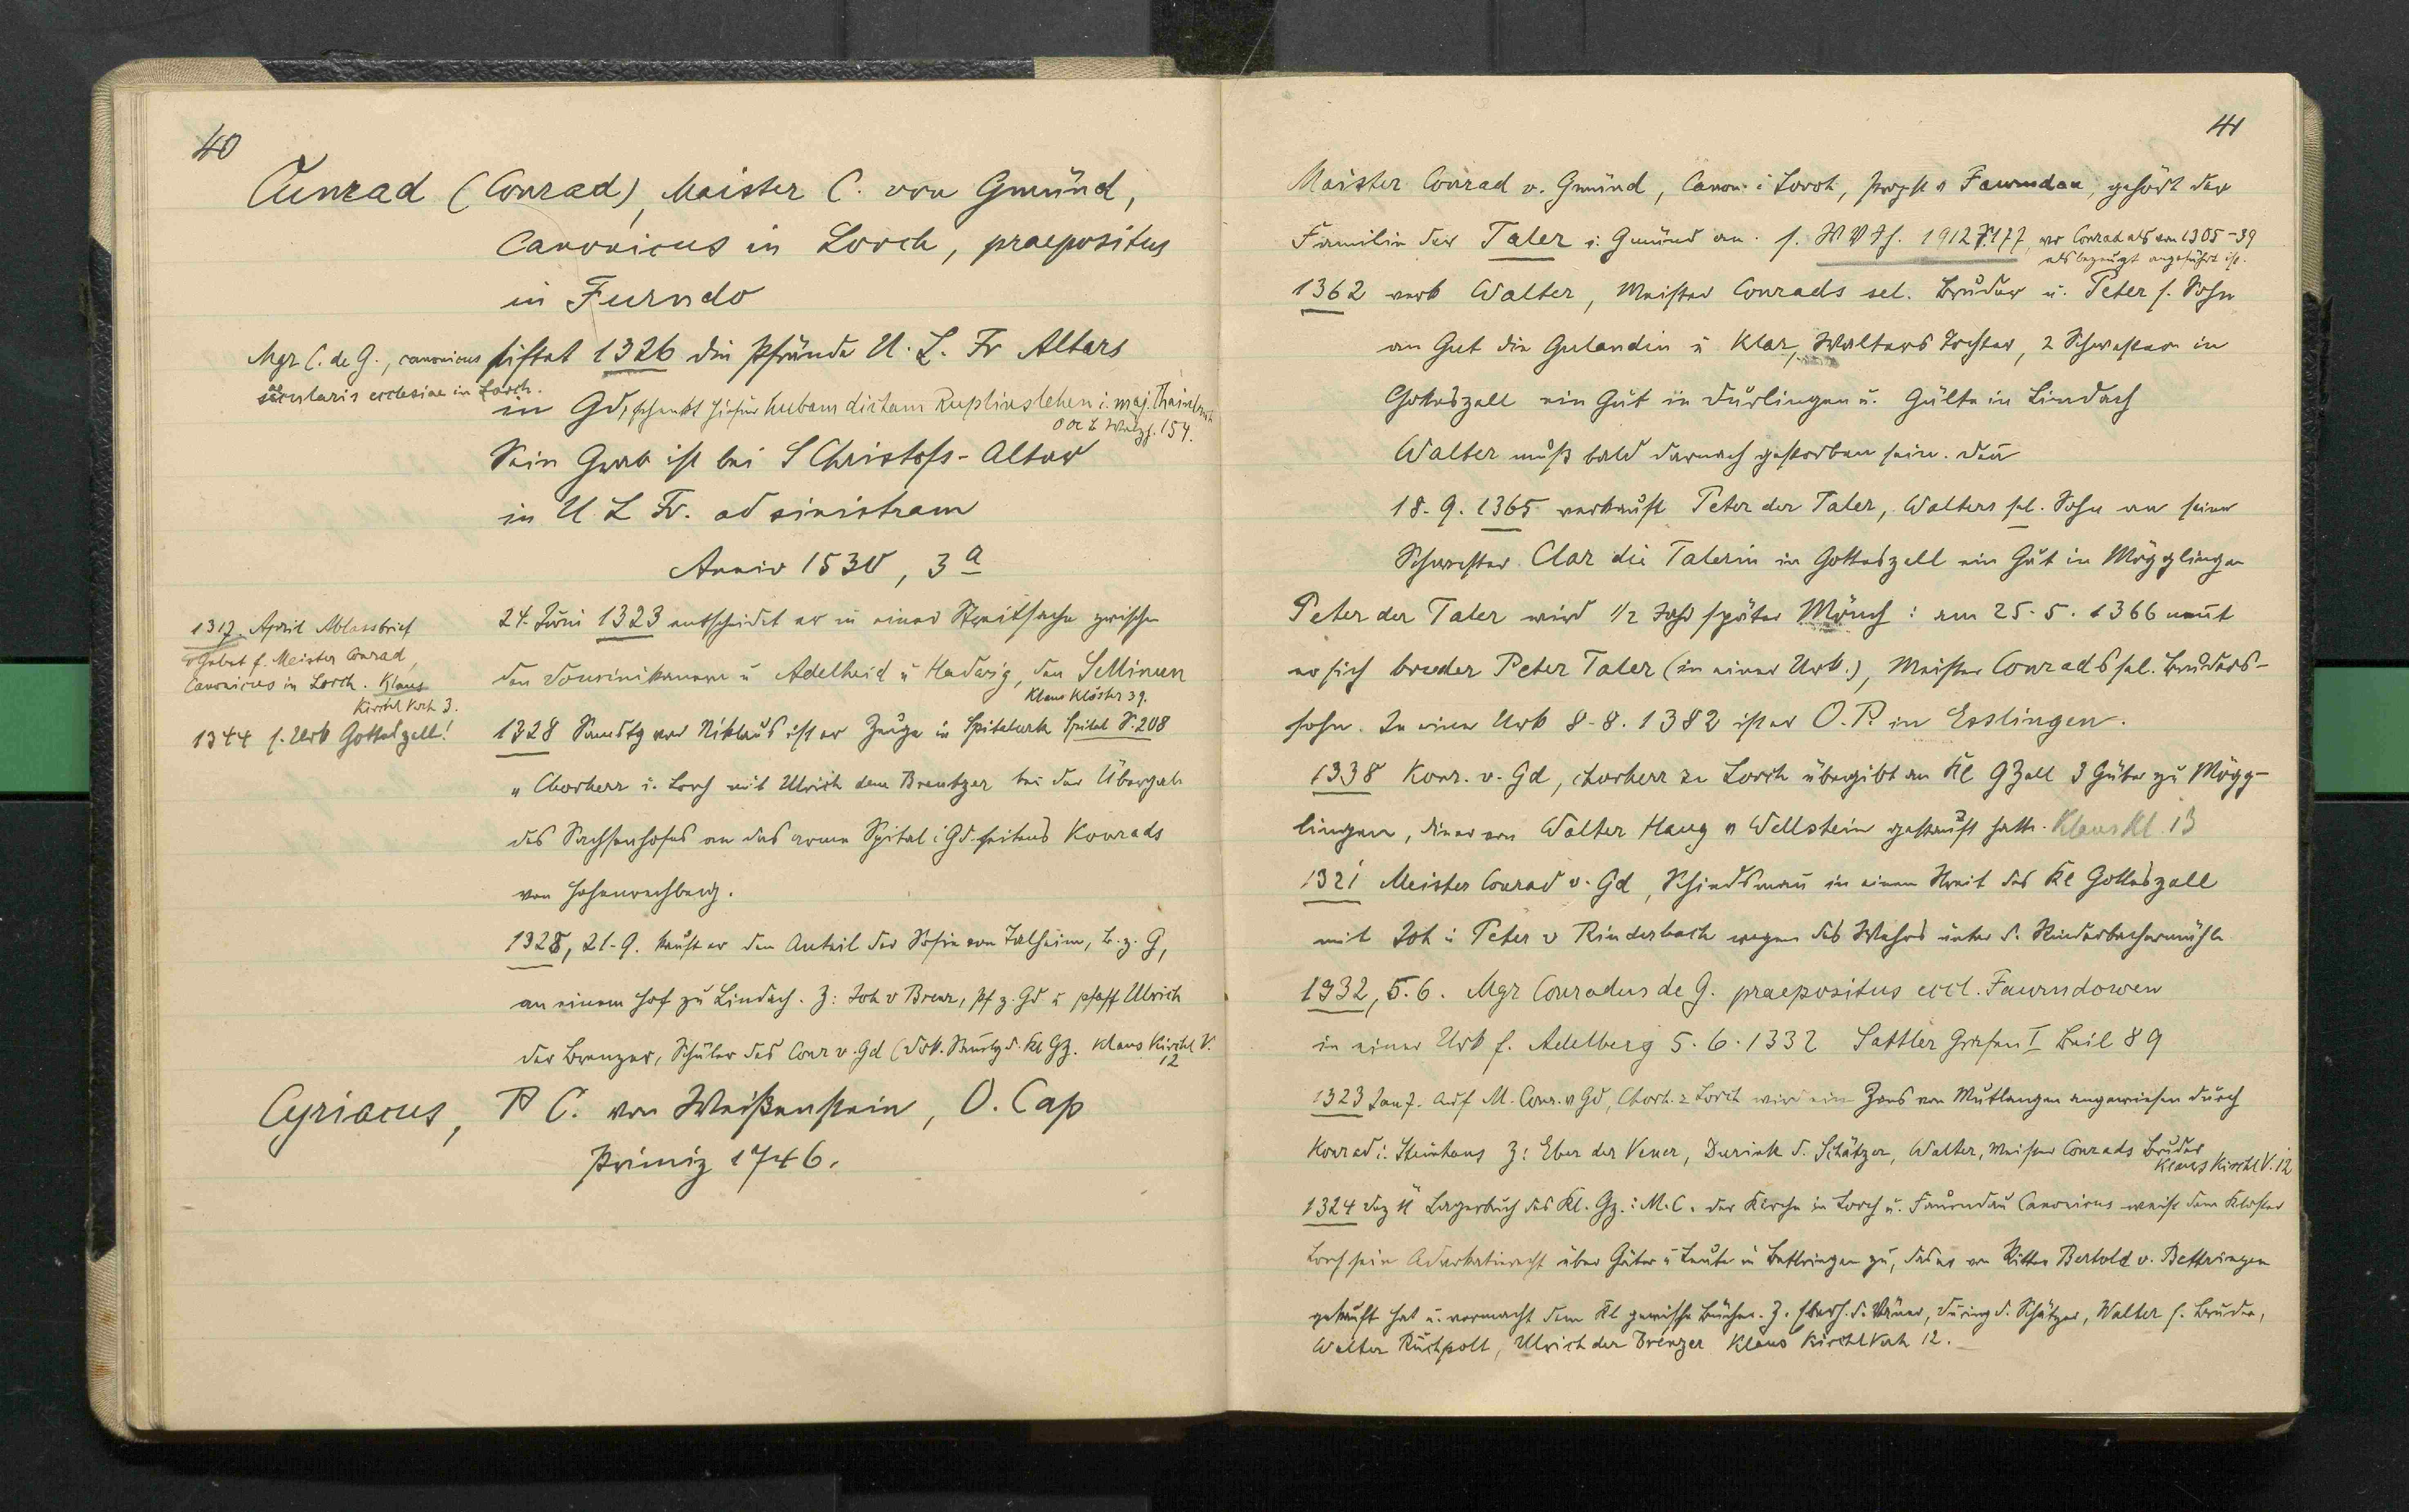 40
Cunrad (Conrad), Maister C. von Gmünd,
Canonicus in Lorch, praepositus
in Furndo
Mgr C. de G., canonicus
saecularis ecclesiae in Lorch.
stiftet 1326 die Pfründe U. L. Fr Altars
in Gd, schenkt hiefür hubam dictam Ruplinslehen i. maj.
154.
Sein Grab ist bei S Christofs-Altar
in U L Fr. ad sinistram
Anniv 1530, 3a
1317. April Ablassbrief
f. Meister Conrad,
Canonicus in Lorch. Klaus
Kirchl Verh 3.
1344 s. Urk Gotteszell!
24. Juni 1323 entscheidet er in einer Streitsache zwischen
den Dominikanern u Adelheid u Hadwig, den Sellinen
Klaus Klöster 39.
1328 Samstg vor Niklaus ist er Zeuge in Spitalurk Spital S. 208
" Chorherr i. Lorch mit Ulrich dem Brentzer bei der Übergab
des Sachsenhofes an das arme Spital i Gd. seitens Konrads
von Hohenrechberg.
1328, 21.9. kauft er den Anteil der Sofie von Talheim, B. z. G,
an einem Hof zu Lindach. Z: Joh v Brenz, Pf z. Gd u pfaff Ulrich
der Brenzer, Schüler des Conr v. Gd (Dok. Samlg d. Kl Gz. Klaus Kirchl V.
12
Cyriacus, P C. von Weißenstein, O. Cap
Primiz 1746.
41
Maister Conrad v. Gmünd, Canon. i Lorch, Propst v Faurndau, gehört der
Familie der Taler i. Gmünd an. s. W V Jh. 1912 S 177, wo Conrad als von 1305-39
als bezeugt angeführt ist.
1362 verk Walter, Meister Conrads sel. Bruder u. Peter s. Sohn
an Gut die Gulandin u Klar, Walters Tochter, 2 Schwestern in
Gotteszell ein Gut in Durlingen u. Gülte in Lindach
Walter muß bald darnach gestorben sein. Den
18. 9. 1365 verkauft Peter der Taler, Walters sel. Sohn an seine
Schwester Clar die Talerin in Gotteszell ein Gut in Mögglingen
Peter der Taler wird 1/2 Jahr später Mönch: am 25. 5. 1366 nennt
er sich brueder Peter Taler (in einer Urk.), Meister Conrads sel. Bruders-
sohn. In einer Urk 8. 8. 1382 ist er O. P. in Esslingen.
1338 Konr. v. Gd, Chorherr zu Lorch übergibt an Kl G Zell 3 Güter zu Mögg-
lingen, die er von Walter Haug v Wellstein gekauft hatte. Klaus Kl. 13
1321 Meister Conrad v. Gd, Schiedsmann in einem Streit des Kl Gotteszell
mit Joh u Peter v Rinderbach wegen des Wehrs unter d. Rinderbachermühle
1332, 5. 6. Mgr Conradus de G. praepositus eccl. Faurndowen
in einer Urk f. Adelberg 5. 6. 1332 Sattler Grafen I Beil 89
1323 Jan 7. Auf M. Conr. v Gd, Chorh. z Lorch wird ein Zins von Mutlangen angewiesen durch
Konrad i. Steinhaus Z: Eber der Vener, Durink d. Schätzer, Walter, Meister Conrads Bruder
Klaus Kirchl V. 12
1324 Lagerbuch des Kl. Gz.: M. C. der Kirche in Lorch u. Faurndau Canonicus weist dem Kloster
Lorch sein Advokatierecht über Güter u Leute in Bettringen zu, das er von Ritter Bertold v. Bettringen
gekauft hat u. vermacht dem Kl gewisse Bücher. Z. Eberh. d. Vener, Düring d. Schätzer, Walter s. Bruder,
Walter Ruchpolt, Ulrich der Brenzer Klaus Kirchl Verh 12.